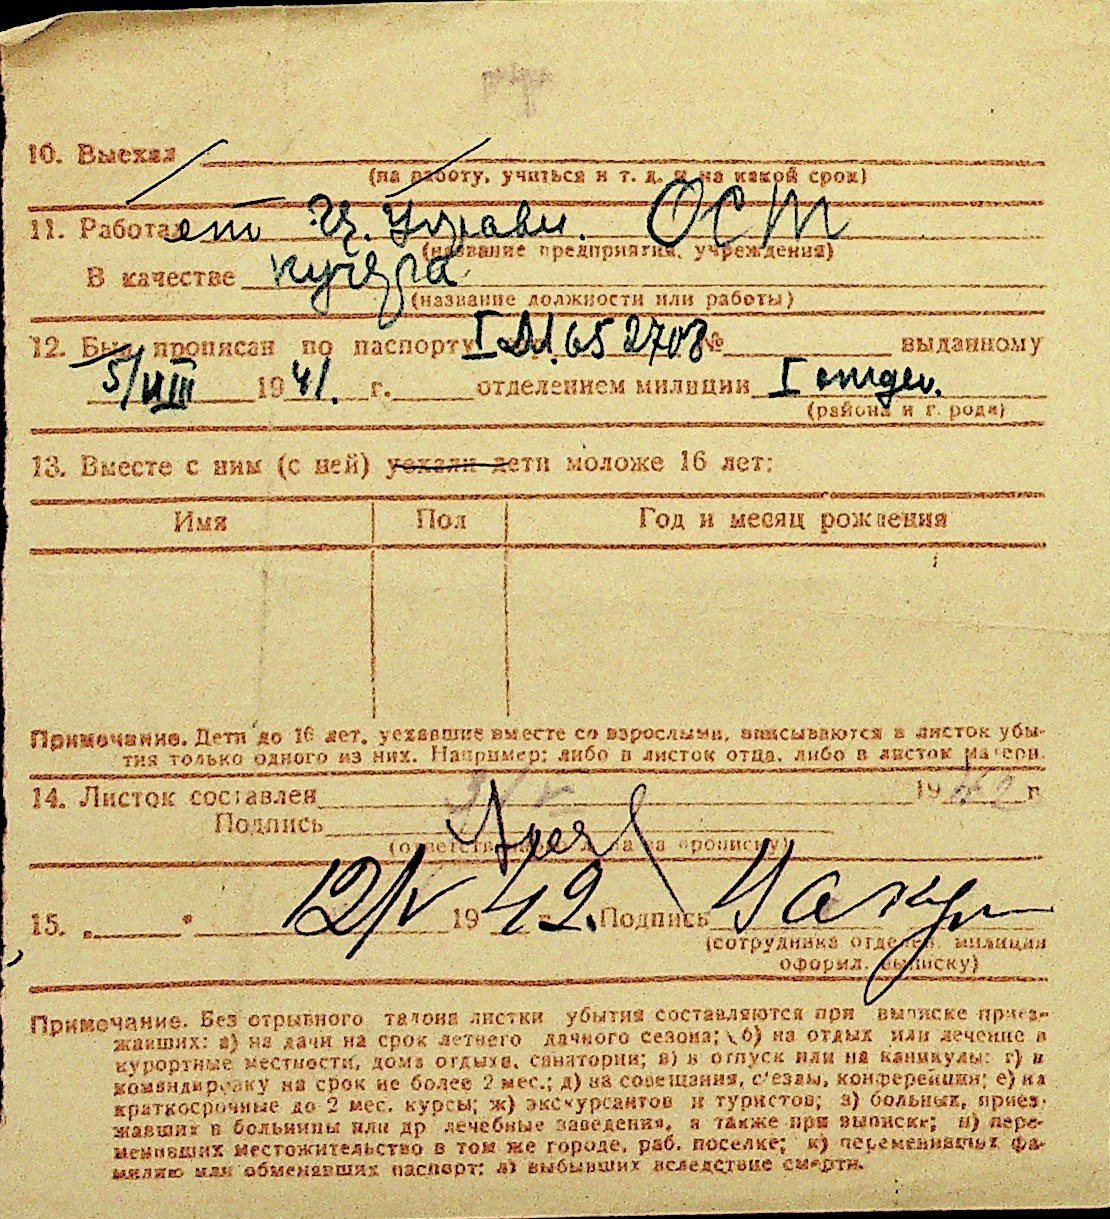 10. Выехал
(на работу, учиться и т. д. и на какой срок)
11. Работает Ц. Управ. ОСТ
(название предприятия, учреждения)
В качестве кучера
(название должности или работы)
12. Был прописан по паспорту I 652708 № выданному
5/VIII 1941. г. отделением милиции I отдел.
(района и г. рода)
13. Вместе с ним (с ней) уехали дети моложе 16 лет:
Имя Пол Год и месяц рождения
Примечание. Дети до 16 лет, уехавшие вместе со взрослыми, вписываются в листок убы-
тия только одного из них. Например: либо в листок отца, либо в листок матери.
14. Листок составлен 1942 г.
Подпись
(ответственного лица за прописку)
15. „ " 12/V 1942. г. Подпись
(сотрудника отделен. милиции
оформл. выписку)
Примечание. Без отрывного талона листки убытия составляются при выписке приез-
жавших: а) на дачи на срок летнего дачного сезона; б) на отдых или лечение в
курортные местности, дома отдыха, санатории; в) в отпуск или на каникулы; г) в
командировку на срок не более 2 мес.; д) на совещания, с'езды, конференции; е) на
краткосрочные до 2 мес. курсы; ж) экскурсантов и туристов; з) больных, приез-
жавших в больницы или др лечебные заведения, а также при выписке; и) пере-
менивших местожительство в том же городе, раб. поселке; к) переменивших фа-
милию или обменявших паспорт; л) выбывших вследствие смерти.